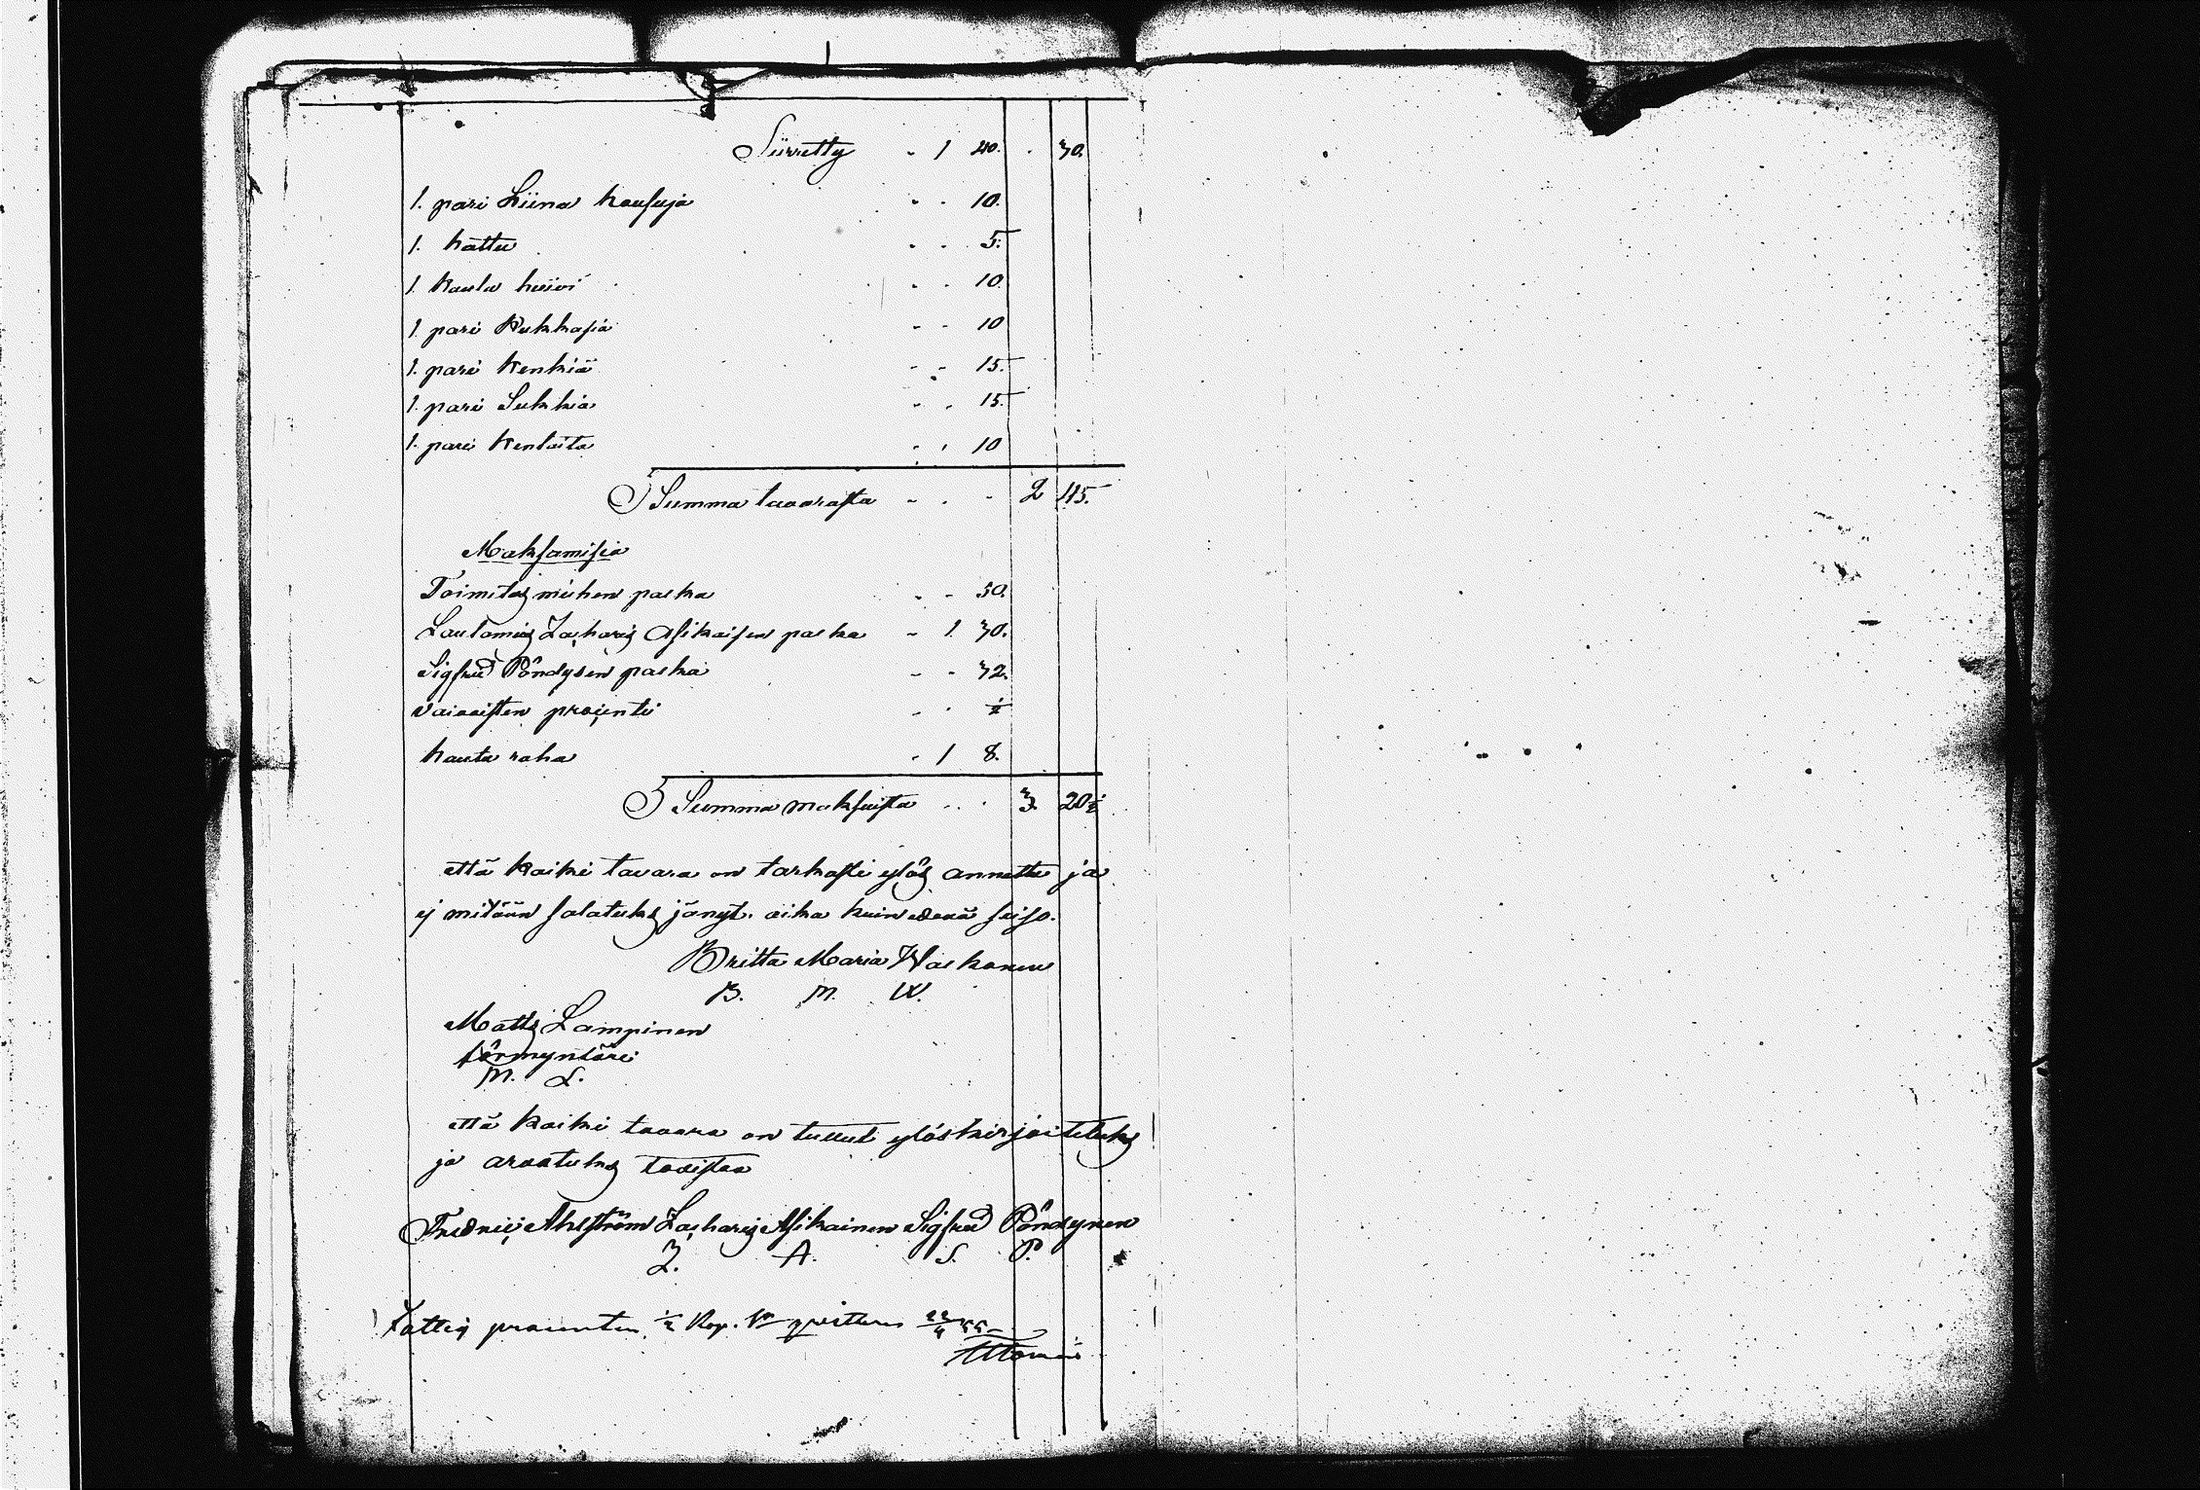 Siirretty - 1 40. - 30.
1. pari Liina housuja - - 10.
1. hattu - - 5.
1. Kaula huivi - - 10
1. pari Rukkasia - - 10
1. pari Kenkiä - - 15.
1. pari Sukkia - - 15.
1. pari Kentaita - - 10
Summa tavarasta - - - 2 45.
Maksamisia
Toimitus miehen palka - - 50.
Lautamies Zacharis Asikaisen palka - 1 30.
Sigfrid Pöndysen palka - - 32.
Vaivaisten procenti - - ½
hauta raha - 1 8.
Summa maksuista - - - 3. 20½
että Kaiki tavara on tarkasti ylös annettu ja
ej mitään salatuks jänyt. aika kuin edenä seiso.
Britta Maria Waskonen
B. M. W.
Matts Lampinen
förmyntäri
M. L.
että Kaiki tavara on tullut ylöskirjoitetuks
ja arvatuks todistaa
Fredric Ahlström Zacharis Asikainen Sigfrid Pöndynen
Z. A. S. P.
Fattig procenten ½ Kop. Sr qvitteras 22/4 55